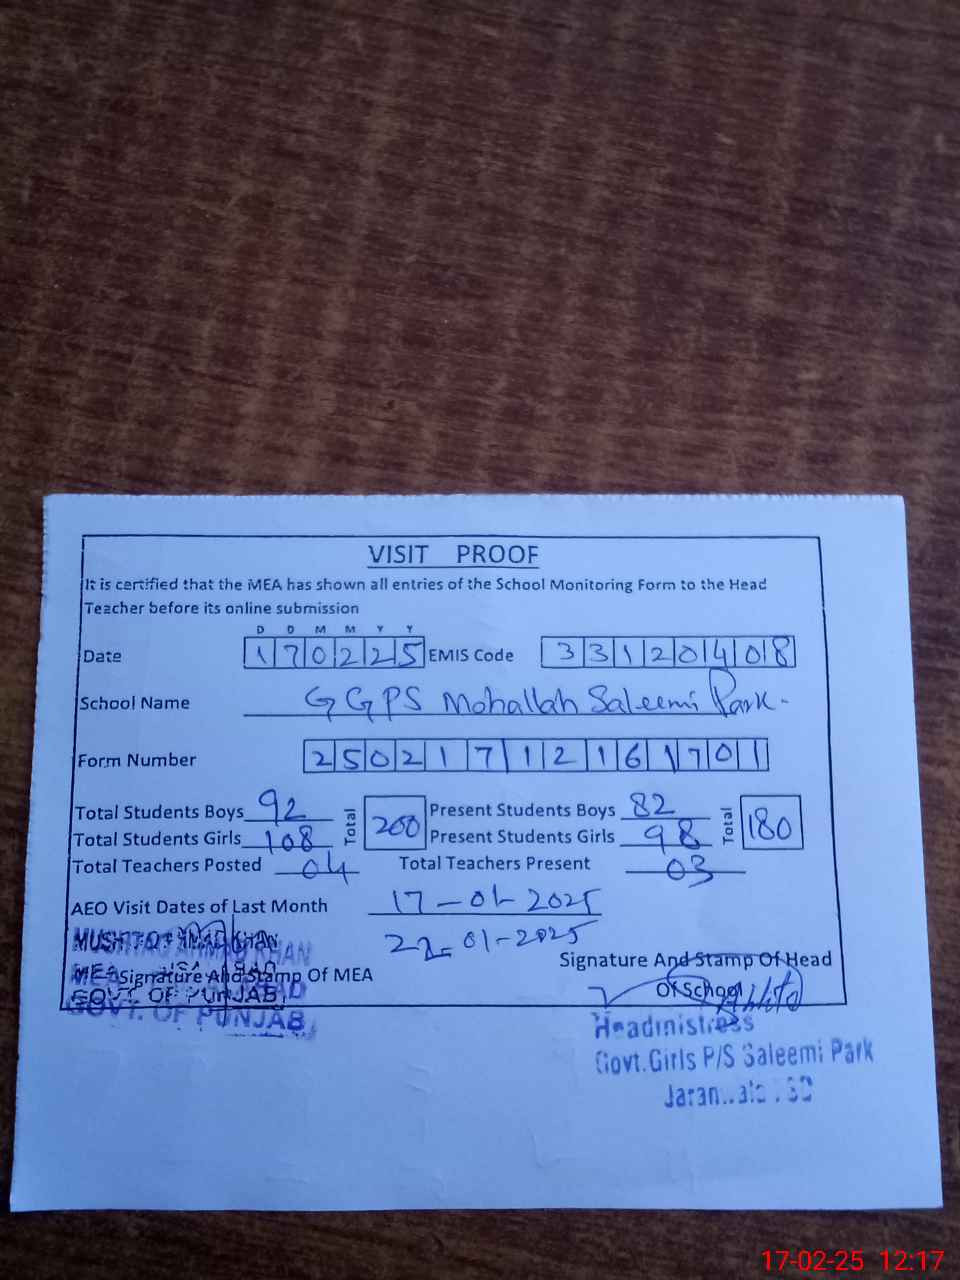 VISIT PROOF
It is certified that the MEA has shown all entries of the School Monitoring Form to the Head
Teacher before its online submission
D D M M Y Y
Date 170225 EMIS Code 33120408
School Name GGPS Mohallah Saleemi Park.
Form Number 25021712161701
Total Students Boys 92 Total 200 Present Students Boys 82 Total 180
Total Students Girls 108 Present Students Girls 98
Total Teachers Posted 04 Total Teachers Present 03
AEO Visit Dates of Last Month 17-01-2025
22-01-2025
MUSHTAQ AHMAD KHAN
MEA
GOVT. OF PUNJAB
Signature And Stamp Of MEA
Signature And Stamp Of Head
Of School
Headmistress
Govt. Girls P/S Saleemi Park
17-02-25 12:17